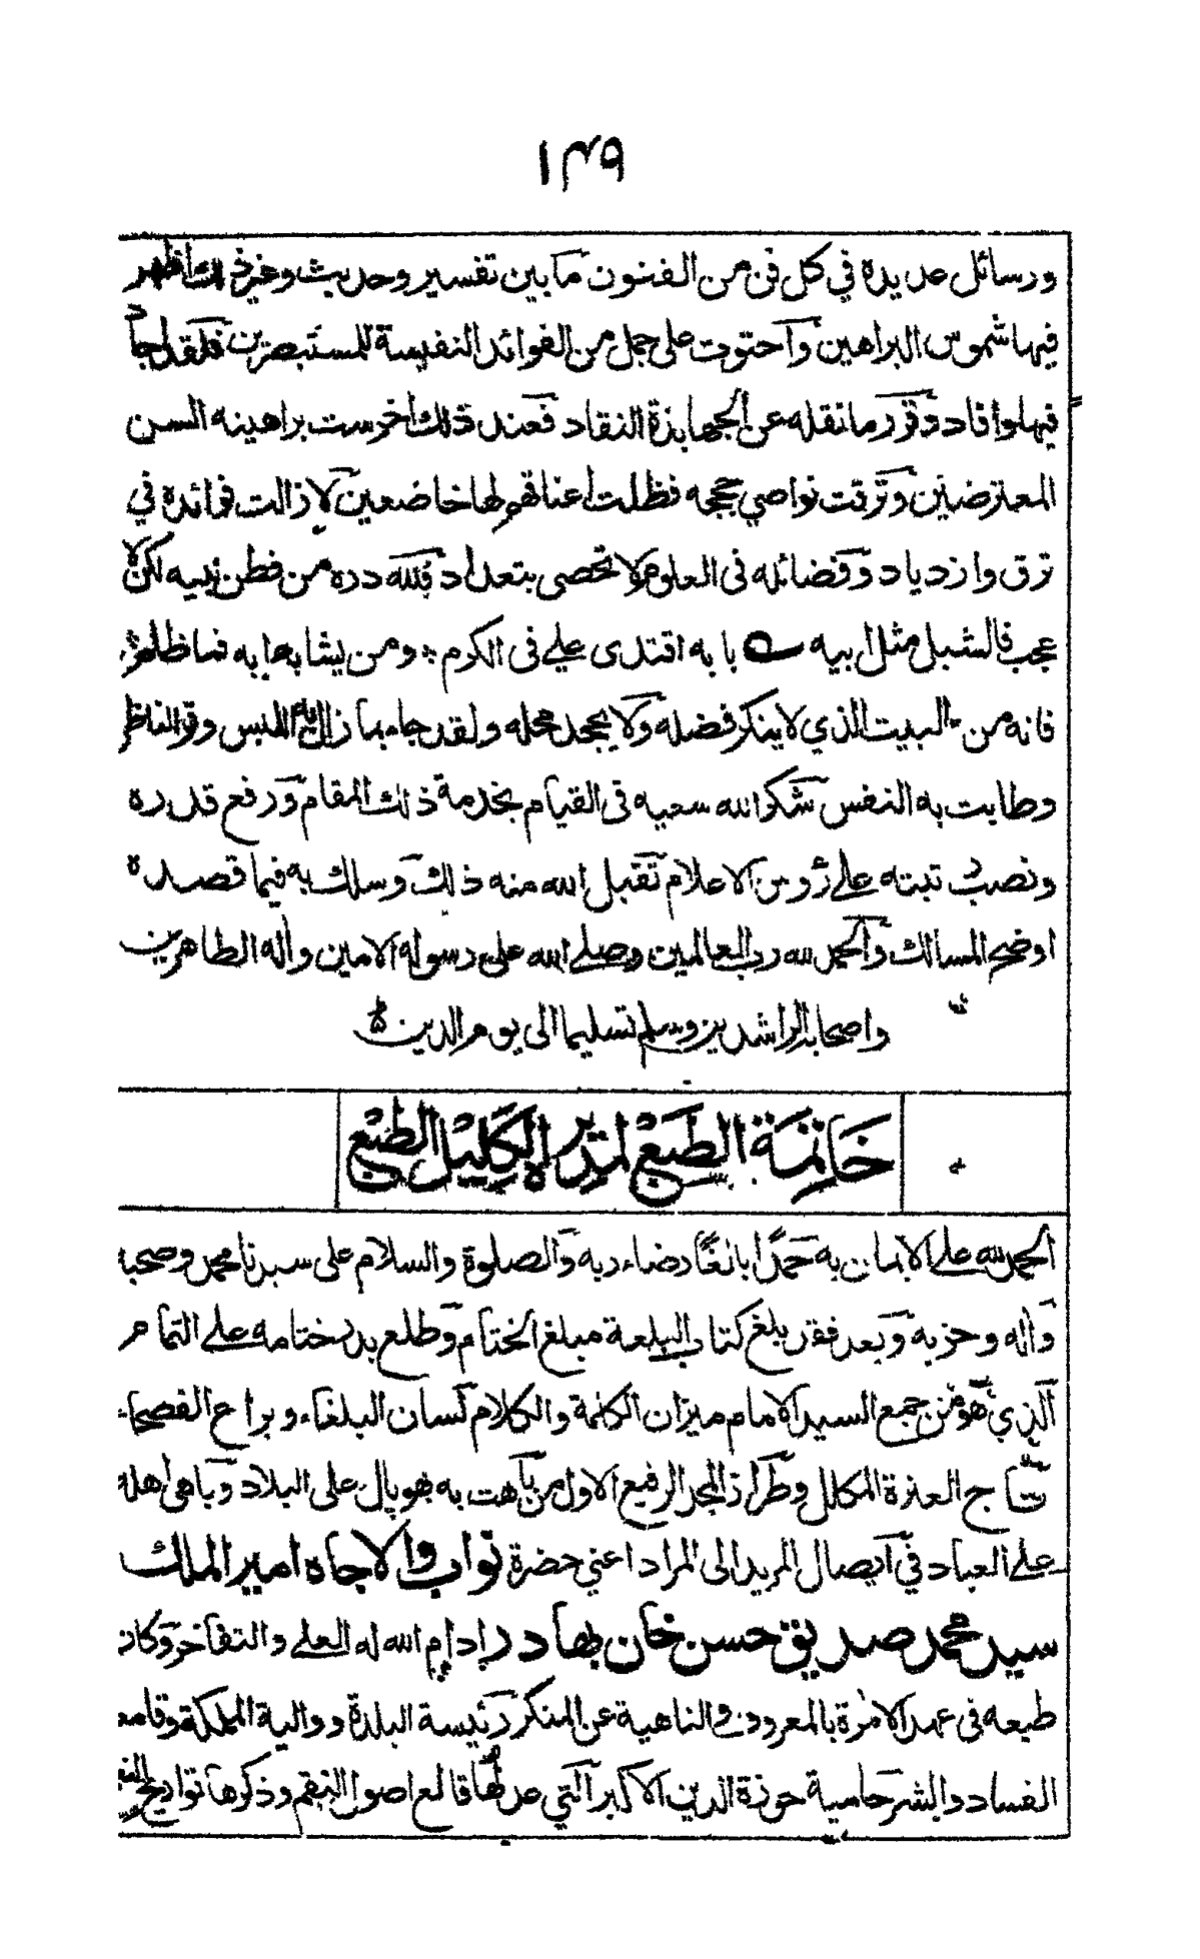 ١٣٩
ورسائل عديدة في كل فن من الفنون ما بين تفسير وحديث وغير ذلك اظهر
فيها شموس البراهين واحتوت على جمل من الفوائد النفيسة للمستبصرين فلقد اجاد
فيها وافاد وقرر ما نقله عن الجهابذة النقاد فعند ذلك اخرست براهينه السن
المعترضين وترقت نواصي حججه فظلت اعناقهم لها خاضعين لا زالت فوائده في
ترق وازدياد وفضائله في العلوم لا تحصى بتعداد فلله دره من فطن نبيه لكن لا
عجب فالشبل مثل ابيه بابه اقتدى علي في الكرم ومن يشابه ابه فما ظلم
فانه من البيت الذي لا ينكر فضله ولا يجحد محله ولقد جاء بما زال به اللبس وقر الناظر
وطابت به النفس شكر الله سعيه في القيام بخدمة ذلك المقام ورفع قدره
ونصب رتبته على رؤوس الاعلام تقبل الله منه ذلك وسلك به فيما قصده
اوضح المسالك والحمد لله رب العالمين وصلى الله على رسوله الامين واله الطاهرين
واصحابه الراشدين وسلم تسليما الى يوم الدين
خاتمة الطبع لمدير الكليل الطبع
الحمد لله على الايمان به حمدا بالغا رضاء ربه والصلوة والسلام على سيدنا محمد وصحبه
واله وحزبه وبعد فقد بلغ كتاب البلغة مبلغ الختام وطلع بدر ختامه على التمام
الذي هو من جمع السيد الامام ميزان الكلمة والكلام لسان البلغاء ويراع الفصحاء
تاج العزة المكلل وطراز المجد الرفيع الاول من باهت به بهوپال على البلاد وباهى اهله
على العباد في ايصال المريد الى المراد اعني حضرة نواب والا جاه امير الملك
سيد محمد صديق حسن خان بهادر ادام الله له العلى والتفاخر وكان
طبعه في عهد الامرة بالمعروف والناهية عن المنكر رئيسة البلدة ووالية المملكة وقامعة
الفساد والشر حامية حوزة الدين الاكبر التي عدلها قالع اصول النقم وذكرها تواريخ